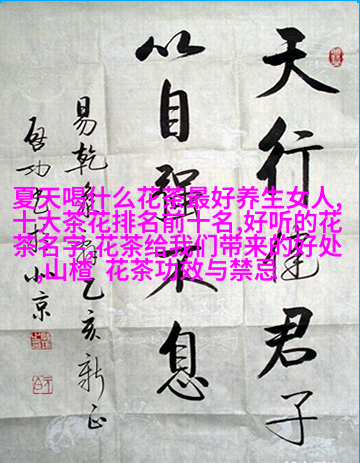 天行健君子
以自強不息
易乾象辭乙亥新正
啓功書於北京
夏天喝什么花茶最好养生女人,
十大茶花排名前十名,好听的花
茶名字,花茶给我们带来的好处
,山楂 花茶功效与禁忌